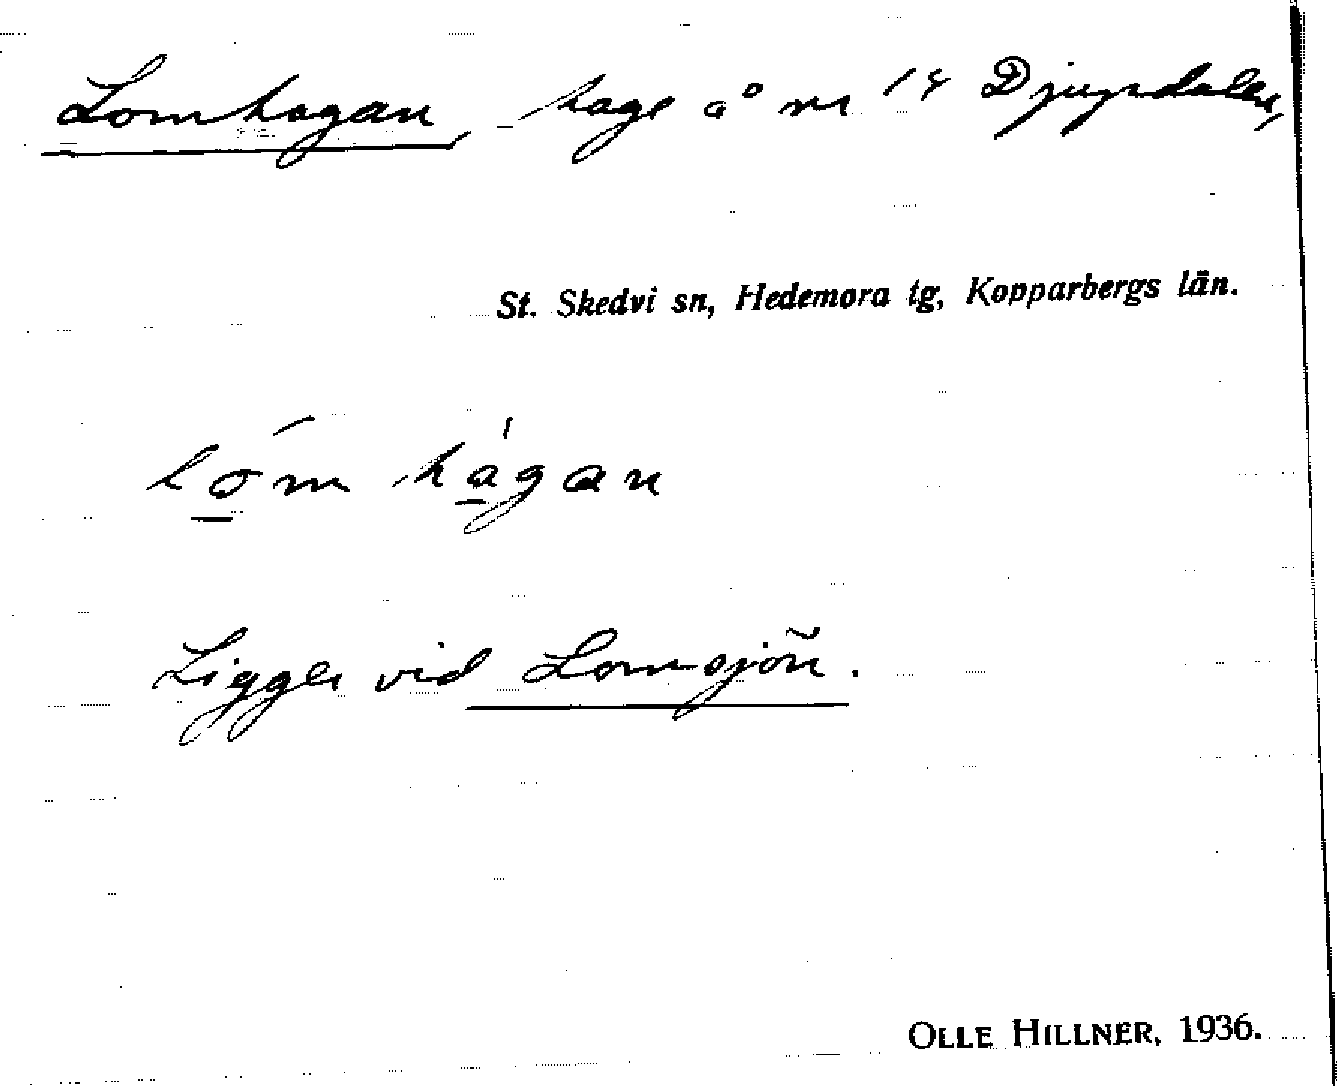 Lomhagan, hage å nr 14 Djupdalen,
St. Skedvi sn, Hedemora tg, Kopparbergs län.
lo̱m ha̱gan
Ligger vid Lomsjön.
OLLE HILLNER, 1936.